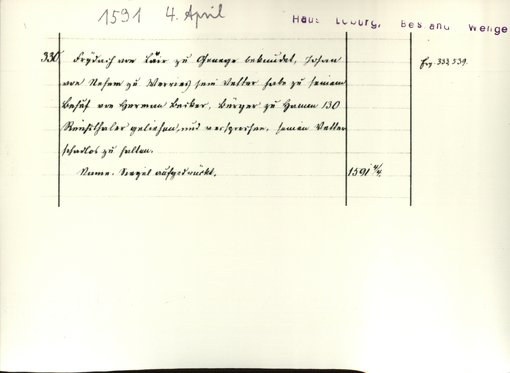 1591 4. April
Haus Loburg, Bestand Wenge
330 Frydach von Läer zu Genege bekundet, Johan
von Nehem zu Werries sein Vetter habe zu seinem
Behuf von Herman Becker, Bürger zu Hamm 130
Reichsthaler geliehen, und versprechen, seinen Vetter
schadlos zu halten.
Name. Siegel aufgedrückt. 1591 4/4.
333, 539.